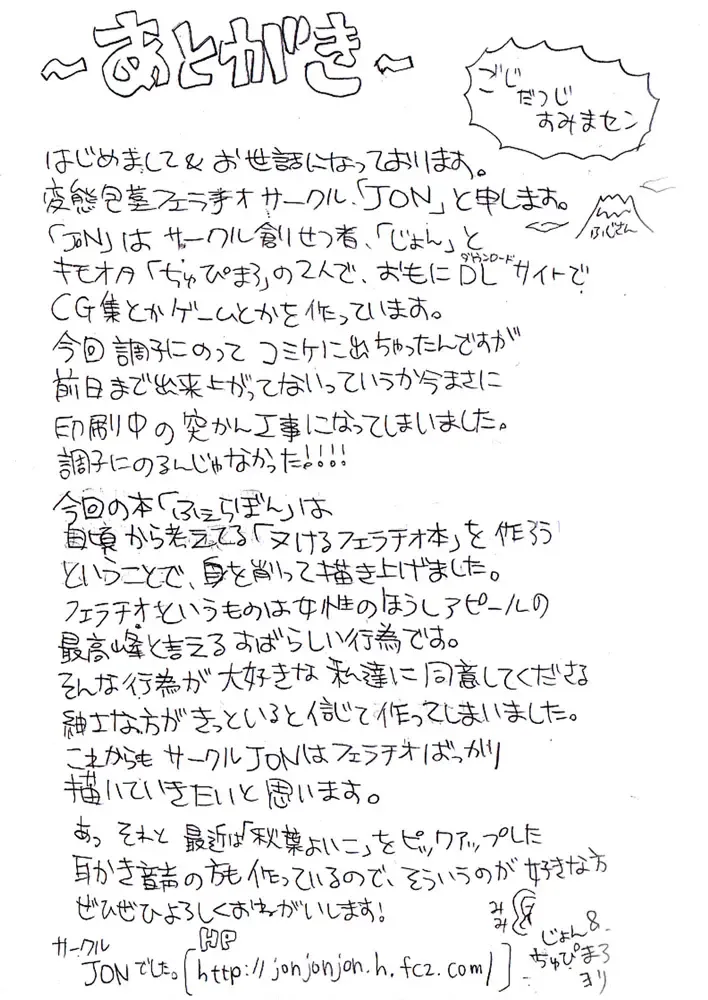 ～あとがき～
ごじ
だつじ
すみまセン
はじめまして＆お世話になっております。
変態包茎フェラチオサークル、「JON」と申します。
ふじさん
「JON」はサークル創りせつ者、「じょん」と
キモオタ「ぢゅぴまろ」の2人で、おもにDLサイトで
ダウンロード
CG集とかゲームとかを作っています。
今回調子にのってコミケに出ちゃったんですが
前日まで出来上がってないっていうか今まさに
印刷中の突かん工事になってしまいました。
調子にのるんじゃなかった!!!!
今回の本「ふぇらぼん」は
日頃から考えてる「ヌけるフェラチオ本」を作ろう
ということで、身を削って描き上げました。
フェラチオというものは女性のほうしアピールの
最高峰と言えるすばらしい行為です。
そんな行為が大好きな私達に同意してくださる
紳士な方がきっといると信じて作ってしまいました。
これからもサークルJONはフェラチオばっかり
描いていきたいと思います。
あっ それと 最近は「秋葉よいこ」をピックアップした
耳かき音声の方も作っているので、そういうのが好きな方
ぜひぜひよろしくおねがいします!
みみ
サークル
JONでした。
HP
[http://jonjonjon.h.fc2.com/]
じょん＆
ぢゅぴまろ
ヨリ